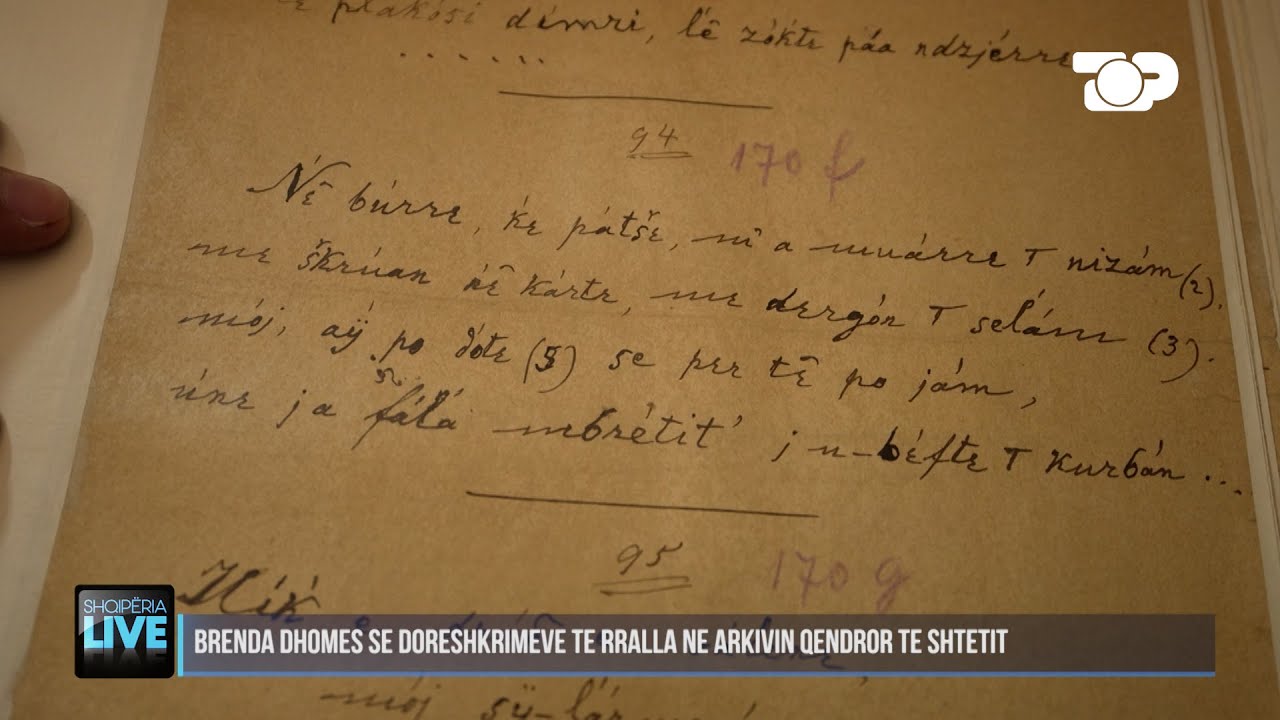 plakósi démri, lê zókte páa ndzjérre
. . . . . .
94 170 f
Nê búrre, ḱe pátše, m̂ a muárre T nizám (2).
me škrúan ńê kárte, me dergón T selám (3).
mój, aÿ po δóte (5) se per tê po jám,
úne ja fálá mbrétit' j u-béfte T kurbán ...
95 170 g
Hík
mój sÿ-lár
TOP
SHQIPËRIA
LIVE
BRENDA DHOMES SE DORESHKRIMEVE TE RRALLA NE ARKIVIN QENDROR TE SHTETIT